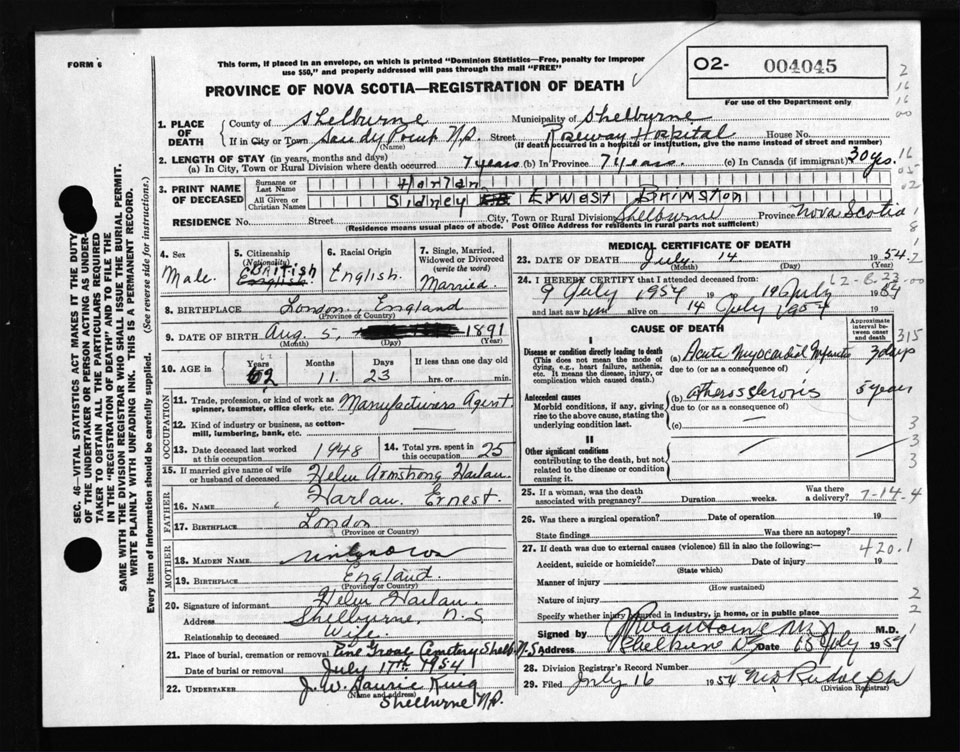 FORM 6
This form, if placed in an envelope, on which is printed "Dominion Statistics—Free, penalty for improper
use $50," and properly addressed will pass through the mail "FREE"
PROVINCE OF NOVA SCOTIA—REGISTRATION OF DEATH
O2- 004045
For use of the Department only
1. PLACE OF DEATH
County of Shelburne Municipality of Shelburne
If in City or Town Sandy Point N.S. Street Roseway Hospital House No.
(Name) (If death occurred in a hospital or institution, give the name instead of street and number)
2. LENGTH OF STAY (in years, months and days)
(a) In City, Town or Rural Division where death occurred 7 years (b) In Province 7 years. (c) In Canada (if immigrant) 30 yrs.
3. PRINT NAME OF DECEASED
Surname or Last Name Harlan
All Given or Christian Names Sidney Ernest Brimston
RESIDENCE No. Street City, Town or Rural Division Shelburne Province Nova Scotia
(Residence means usual place of abode. Post Office Address for residents in rural parts not sufficient)
4. Sex Male.
5. Citizenship (Nationality) British English
6. Racial Origin English.
7. Single, Married, Widowed or Divorced (write the word) Married.
8. BIRTHPLACE London England
(Province or Country)
9. DATE OF BIRTH Aug. 5, 1891
(Month) (Day) (Year)
10. AGE in Years 62 Months 11 Days 23 If less than one day old hrs. or min.
OCCUPATION
11. Trade, profession, or kind of work as spinner, teamster, office clerk, etc. Manufacturers Agent.
12. Kind of industry or business, as cotton-mill, lumbering, bank, etc.
13. Date deceased last worked at this occupation 1948
14. Total yrs. spent in this occupation 25
15. If married give name of wife or husband of deceased Helen Armstrong Harlan
FATHER
16. NAME Harlan Ernest.
17. BIRTHPLACE London
(Province or Country)
MOTHER
18. MAIDEN NAME unknown
19. BIRTHPLACE England.
(Province or Country)
20. Signature of informant Helen Harlan.
Address Shelburne, N.S.
Relationship to deceased Wife.
21. Place of burial, cremation or removal Pine Grove Cemetery Shelb. N.S.
Date of burial or removal July 17th 1954
22. UNDERTAKER J. W. Laurie King
(Name and address)
Shelburne N.S.
MEDICAL CERTIFICATE OF DEATH
23. DATE OF DEATH July 14 1954
(Month) (Day) (Year)
24. I HEREBY CERTIFY that I attended deceased from:
9 July 1954 19 to 14 July 1954
and last saw him alive on 14 July 1954 19
CAUSE OF DEATH
Approximate interval between onset and death
I
Disease or condition directly leading to death (a) Acute Myocardial Infarction 3 days
(This does not mean the mode of dying, e.g., heart failure, asthenia, etc. It means the disease, injury, or complication which caused death.)
due to (or as a consequence of)
Antecedent causes (b) atherosclerosis 5 years
Morbid conditions, if any, giving rise to the above cause, stating the underlying condition last.
due to (or as a consequence of)
(c)
II
Other significant conditions
contributing to the death, but not related to the disease or condition causing it.
25. If a woman, was the death associated with pregnancy? Duration weeks. Was there a delivery? 7-14-4
26. Was there a surgical operation? Date of operation 19
State findings Was there an autopsy?
27. If death was due to external causes (violence) fill in also the following:— 420.1
Accident, suicide or homicide? Date of injury 19
(State which)
Manner of injury
(How sustained)
Nature of injury
Specify whether injury occurred in industry, in home, or in public place
Signed by M.D.
Address Shelburne NS Date 15 July 1954
28. Division Registrar's Record Number
29. Filed July 16 1954 Rudolph
(Division Registrar)
SEC. 46—VITAL STATISTICS ACT MAKES IT THE DUTY
OF THE UNDERTAKER OR PERSON ACTING AS UNDER-
TAKER TO OBTAIN ALL THE PARTICULARS REQUIRED
IN THE "REGISTRATION OF DEATH" AND TO FILE THE
SAME WITH THE DIVISION REGISTRAR WHO SHALL ISSUE THE BURIAL PERMIT.
WRITE PLAINLY WITH UNFADING INK. THIS IS A PERMANENT RECORD.
Every item of information should be carefully supplied. (See reverse side for instructions.)